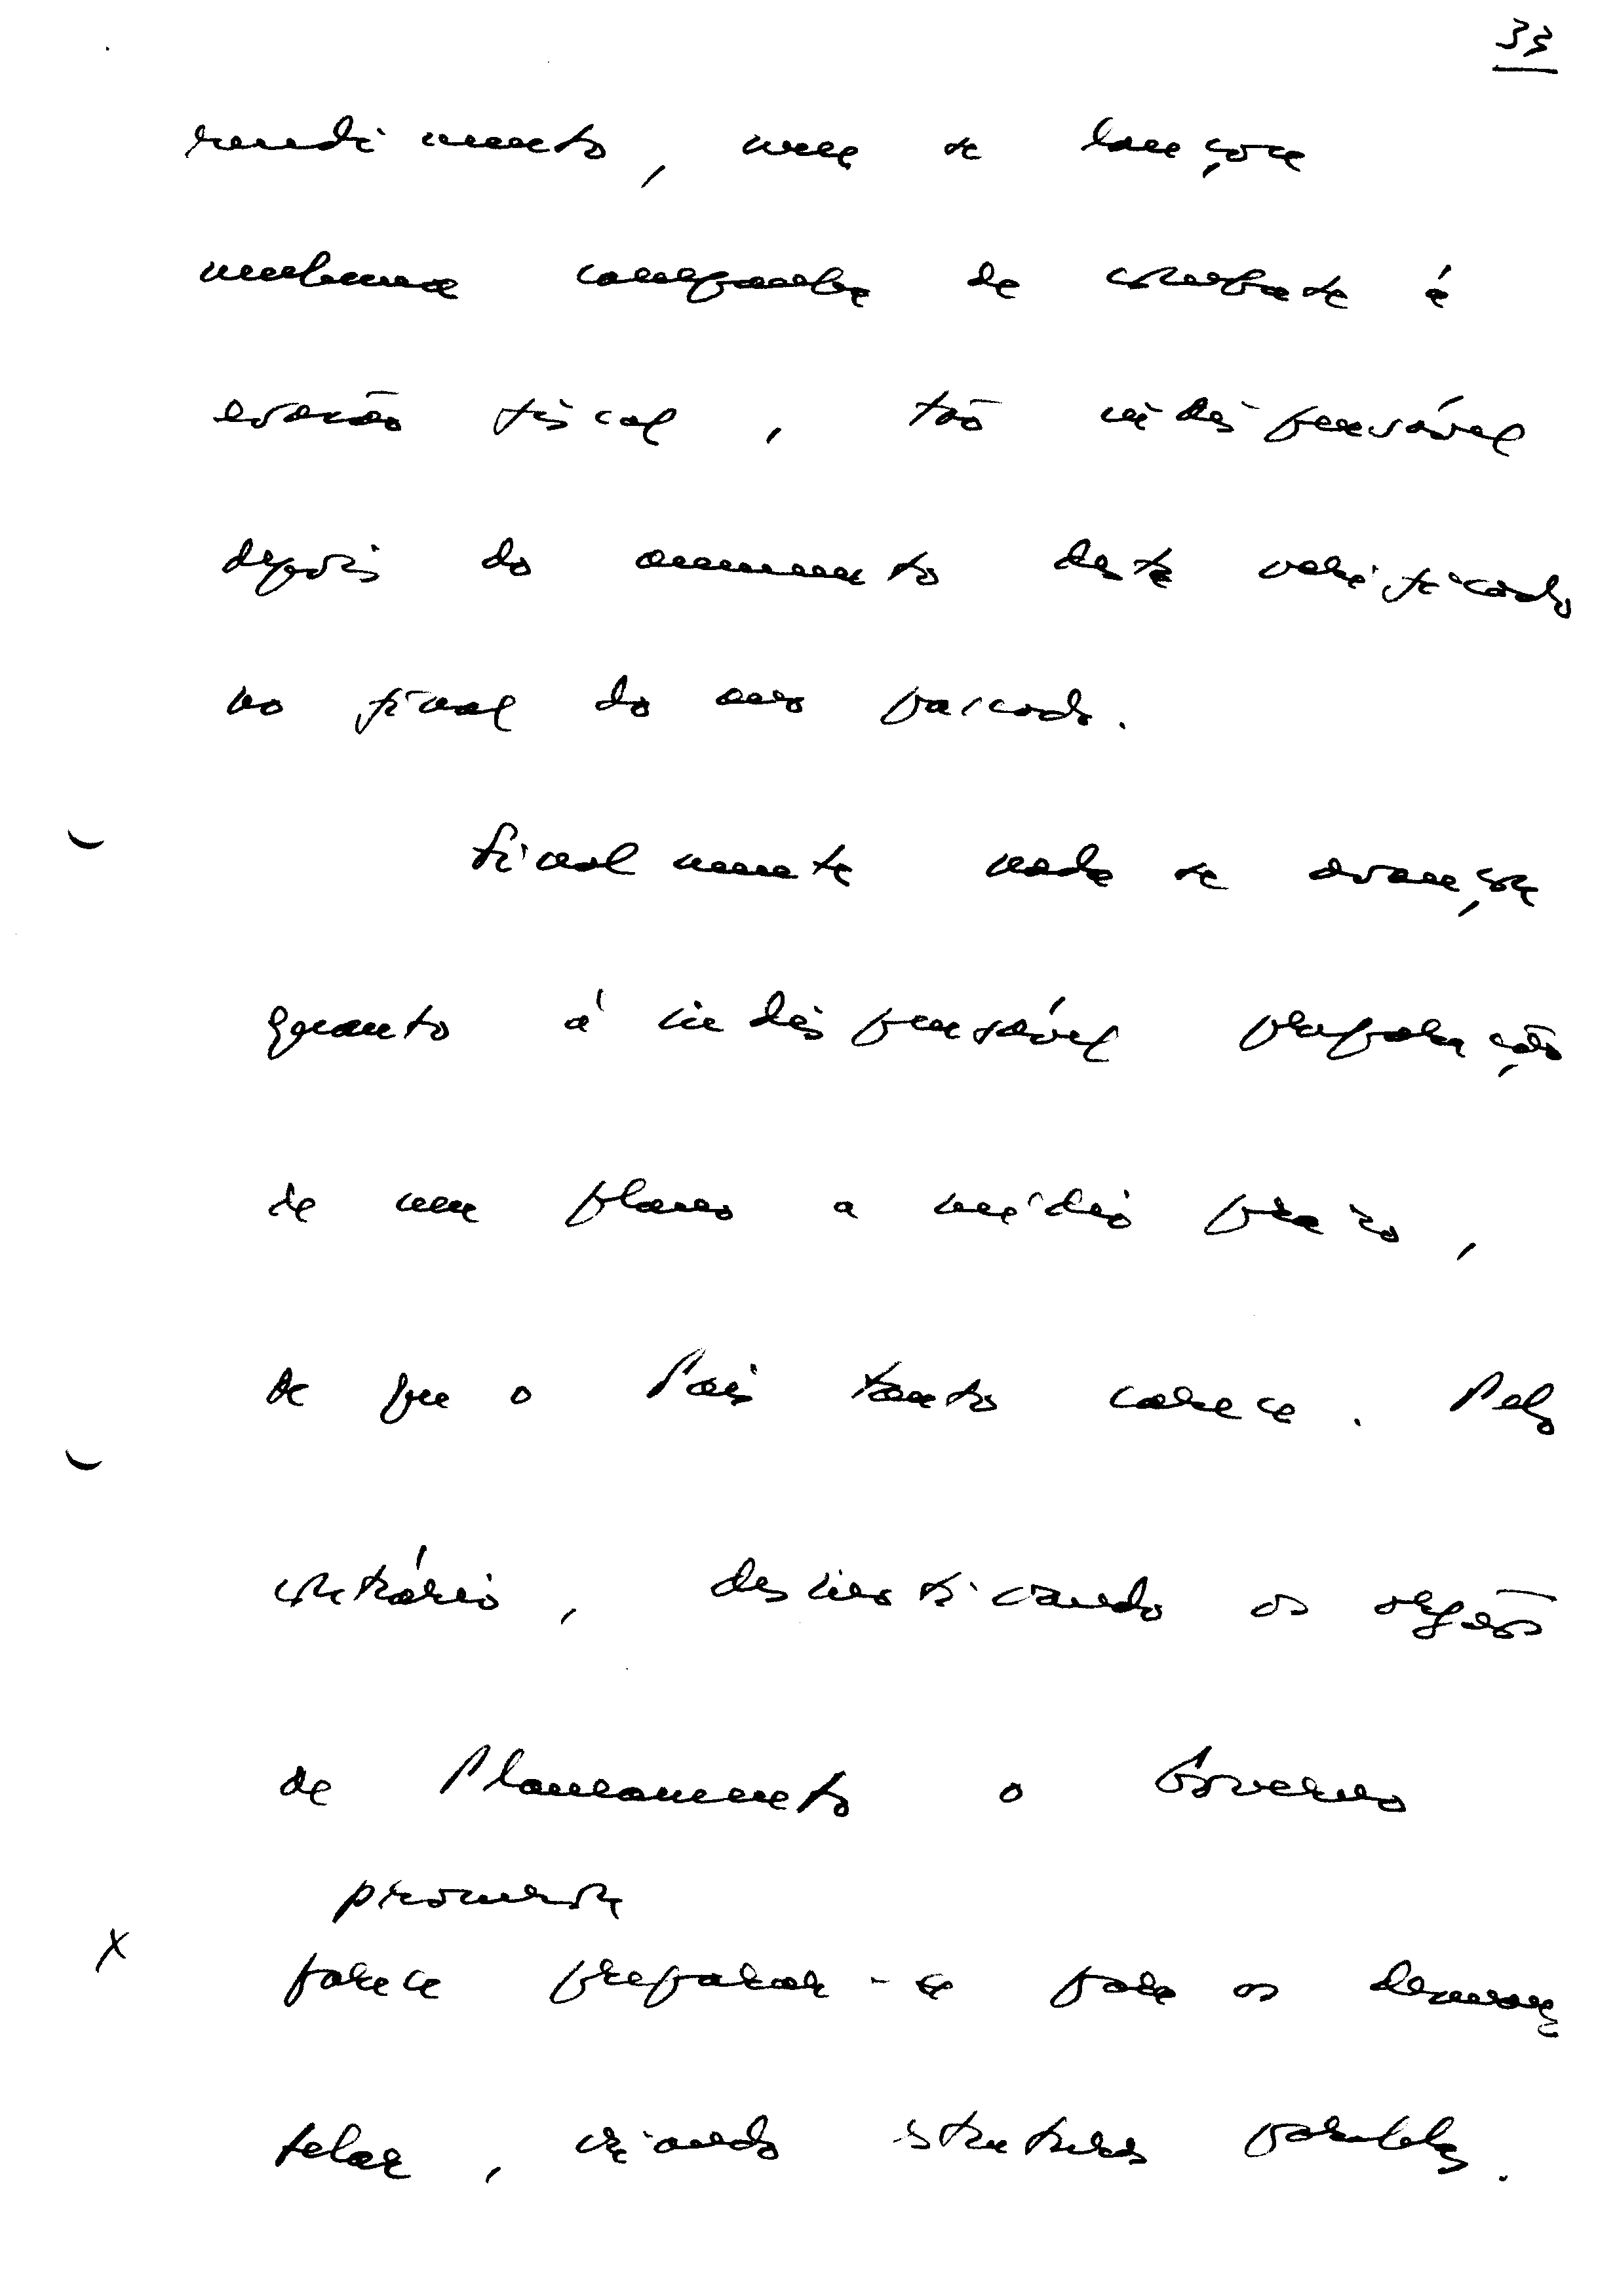 33
rendimento, nem se lançou
nenhuma campanha de combate à
evasão fiscal, tão indispensável
depois do aumento desta verificado
no final do ano passado.
Finalmente nada se avançou
quanto à indispensável preparação
de um plano a médio prazo,
de que o País tanto carece. Pelo
contrário, desarticulando os orgãos
de Planeamento o Governo
parece preparar-se para os desman
telar, criando estruturas paralelas.